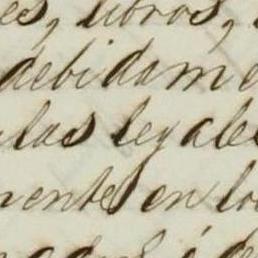 es, libros,
debidame
las legales
mente en lo